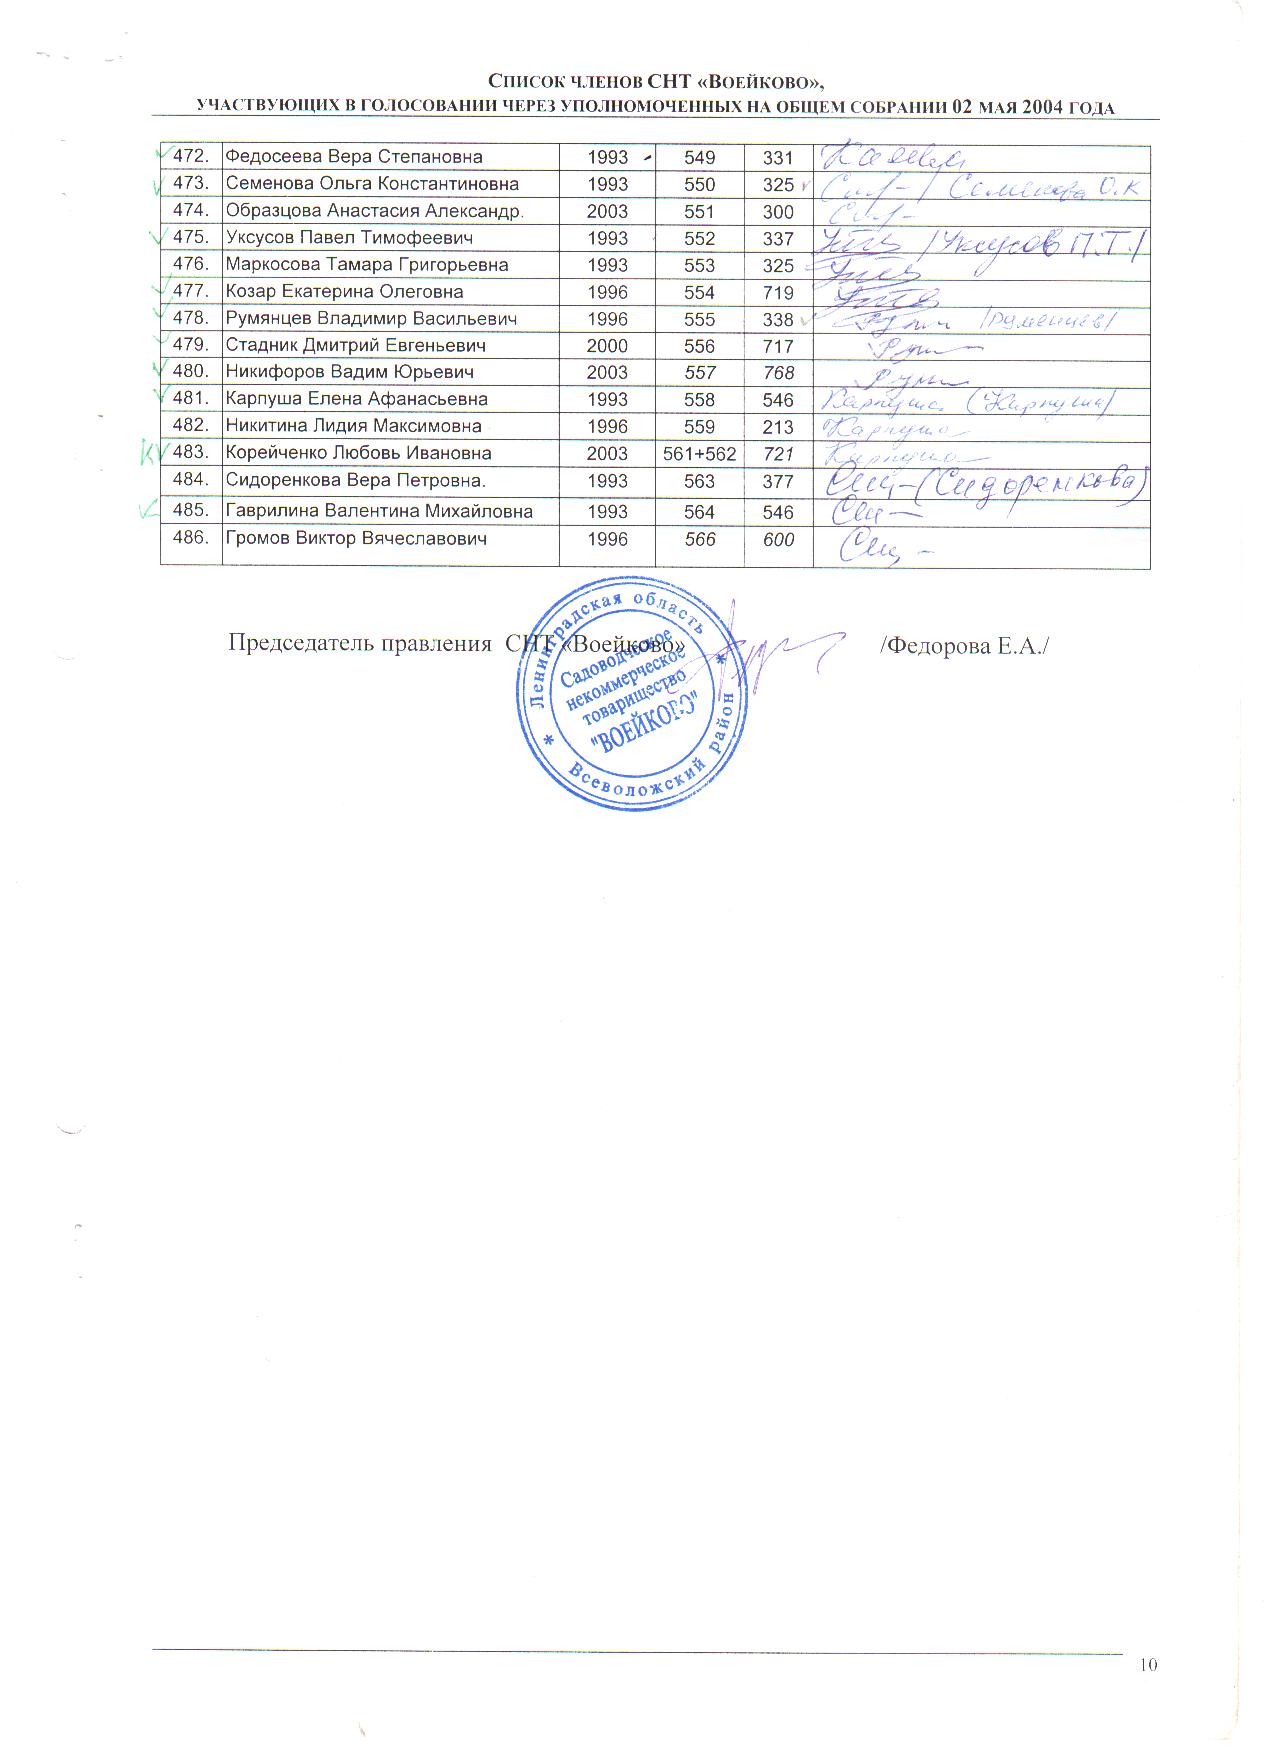 СПИСОК ЧЛЕНОВ СНТ «ВОЕЙКОВО»,
УЧАСТВУЮЩИХ В ГОЛОСОВАНИИ ЧЕРЕЗ УПОЛНОМОЧЕННЫХ НА ОБЩЕМ СОБРАНИИ 02 МАЯ 2004 ГОДА
472. Федосеева Вера Степановна 1993 549 331
473. Семенова Ольга Константиновна 1993 550 325 / Семенова О.К
474. Образцова Анастасия Александр. 2003 551 300
475. Уксусов Павел Тимофеевич 1993 552 337 /Уксусов П.Т./
476. Маркосова Тамара Григорьевна 1993 553 325
477. Козар Екатерина Олеговна 1996 554 719
478. Румянцев Владимир Васильевич 1996 555 338
479. Стадник Дмитрий Евгеньевич 2000 556 717
480. Никифоров Вадим Юрьевич 2003 557 768
481. Карпуша Елена Афанасьевна 1993 558 546 Карпуша (Карпуша)
482. Никитина Лидия Максимовна 1996 559 213 Карпуша
483. Корейченко Любовь Ивановна 2003 561+562 721 Карпуша
484. Сидоренкова Вера Петровна. 1993 563 377 (Сидоренкова)
485. Гаврилина Валентина Михайловна 1993 564 546
486. Громов Виктор Вячеславович 1996 566 600
Председатель правления СНТ «Воейково» /Федорова Е.А./
Ленинградская область
* Всеволожский район *
Садоводческое
некоммерческое
товарищество
"ВОЕЙКОВО"
10